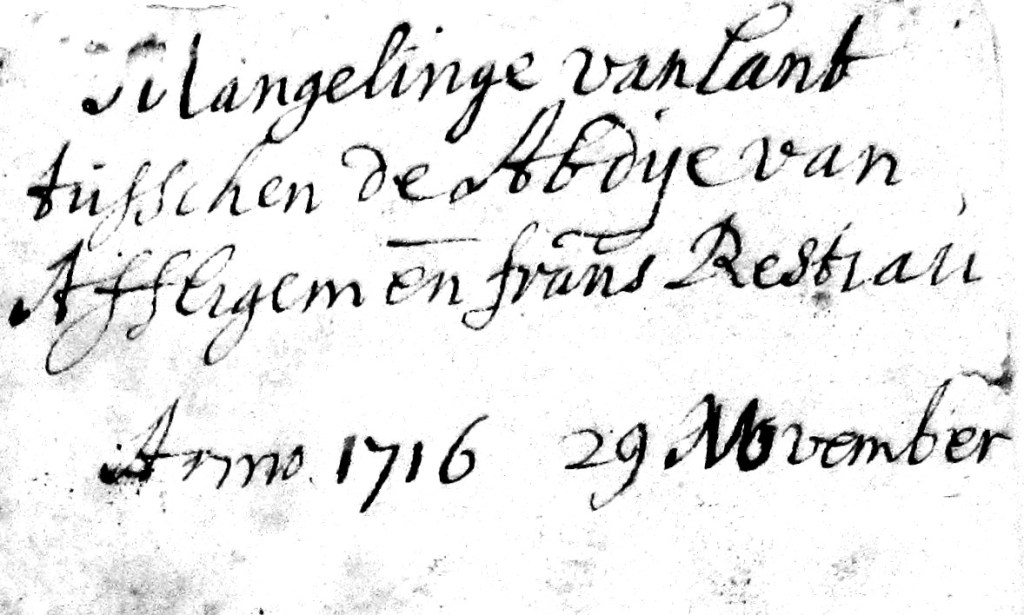 Mangelinge van lant
tusschen de Abdÿe van
Affligem en̄ frans Restiau
Anno 1716 29 November